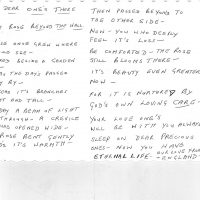 DEAR ONE'S THREE
ROSE BEYOND THE WALL
ONCE GROW WHERE
BESIDE A GARDEN
THE DAYS PASSED
BY -
IT'S BRANCHES
AND TALL -
A BEAM OF LIGHT
THROUGH - A CREVICE
HAD OPENED WIDE -
ROSE BENT GENTLY
IT'S WARMTH -
THEN PASSED BEYOND TO
THE OTHER SIDE -
NOW - YOU WHO DEEPLY
FEEL IT'S LOSS -
BE COMFORTED - THE ROSE
STILL BLOOMS THERE -
IT'S BEAUTY EVEN GREATER
NOW -
FOR IT IS NURTURED BY
GOD'S OWN LOVING CARE -
YOUR LOVE ONE'S
WILL BE WITH YOU ALWAYS
SLEEP ON DEAR PRECIOUS
ONES - NOW YOU HAVE
ETERNAL LIFE - OUR LOVE FROM
ENGLAND